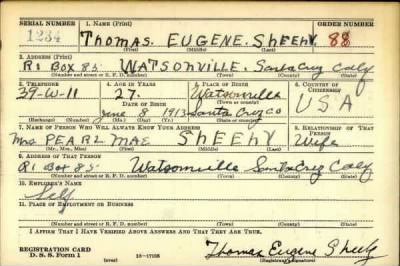 SERIAL NUMBER 1. NAME (Print)
1234 Thomas. EUGENE. SheehY. 88
(First) (Middle) (Last)
2. ADDRESS (Print)
R1 BOX 85 WATSONVILLE, Santa Cruz Calif
(Number and street or R. F. D. number) (Town) (County) (State)
3. TELEPHONE 4. AGE IN YEARS 5. PLACE OF BIRTH 6. COUNTRY OF CITIZENSHIP
39-W-11 27. Watsonville
(Town or county)
DATE OF BIRTH
June 8 1913 Santa Cruz Co USA
(Exchange) (Number) (Mo.) (Day) (Yr.) (State or country)
7. NAME OF PERSON WHO WILL ALWAYS KNOW YOUR ADDRESS 8. RELATIONSHIP OF THAT PERSON
Mrs PEARL MAE SheehY Wife
(Mr., Mrs., Miss) (First) (Middle) (Last)
9. ADDRESS OF THAT PERSON
R1 Box 85 Watsonville Santa Cruz Calif
(Number and street or R. F. D. number) (Town) (County) (State)
10. EMPLOYER'S NAME
Self
11. PLACE OF EMPLOYMENT OR BUSINESS
(Number and street or R. F. D. number) (Town) (County) (State)
I AFFIRM THAT I HAVE VERIFIED ABOVE ANSWERS AND THAT THEY ARE TRUE.
REGISTRATION CARD
D. S. S. Form 1 (over) 16-17105 Thomas Eugene Sheehy
(Registrant's signature)